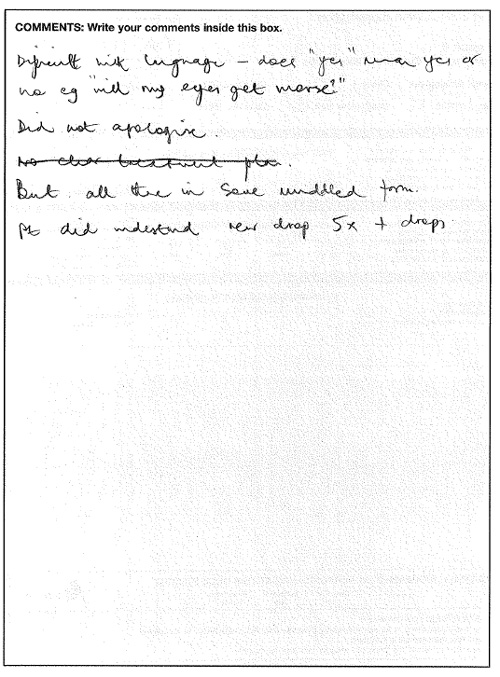 COMMENTS: Write your comments inside this box.
Difficult with language - does "yes" mean yes or
no eg "will my eyes get worse?"
Did not apologise.
No clear treatment plan.
But all there in some muddled form.
Pt did understand new drop 5x + drops